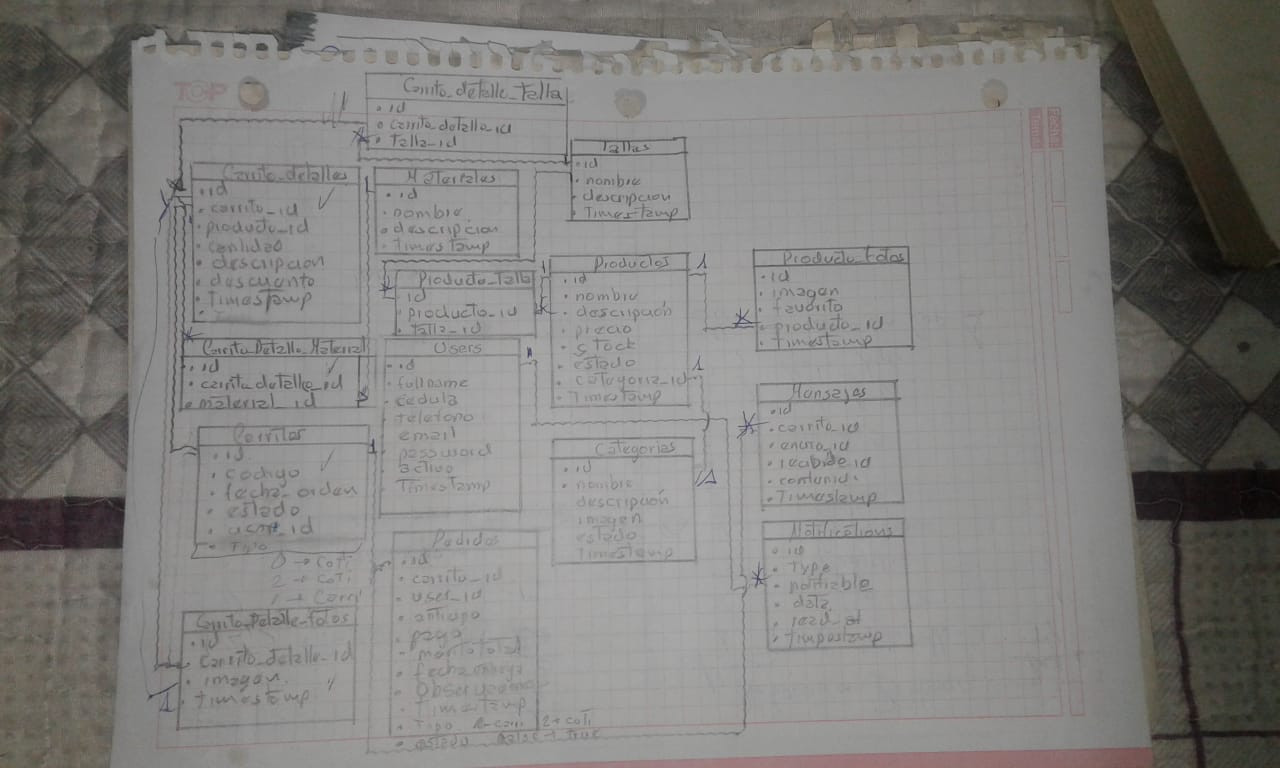 TOP
Fecha
Tema
Carrito_detalle_Talla
• id
• carrito_detalle_id
• Talla_id
Tallas
• id
• nombre
• descripcion
• Timestamp
Carrito_detalles
• id
• carrito_id
• producto_id
• cantidad
• descripcion
• descuento
• Timestamp
Materiales
• id
• nombre
• descripcion
• Timestamp
Producto_Talla
• id
• producto_id
• talla_id
Productos
• id
• nombre
• descripción
• precio
• stock
• estado
• categoria_id
• Timestamp
1
1
Producto_Fotos
• id
• imagen
• favorito
• producto_id
• Timestamp
Carrito_Detalle_Material
• id
• carrito_detalle_id
• material_id
Users
• id
• fullname
• cedula
• telefono
• email
• password
• activo
• Timestamp
Mensajes
• id
• carrito_id
• envia_id
• recibide_id
• Timestamp
Carritos
• id
• codigo
• fecha_orden
• estado
• user_id
• Tipo
0 → Coti
2 → Coti
1 → Carri
Categorias
• id
• nombre
descripción
imagen
estado
Timestamp
1
Notifications
• id
• Type
• notifiable
• data
• read_at
• Timpostamp
Pedidos
• id
• carrito_id
• user_id
• anticipo
• pago
• fecha
• Timestamp
• Tipo 2 → coti
• estado
Carrito_Detalle_fotos
• id
carrito_detalle_id
• imagen
• timestamp
1